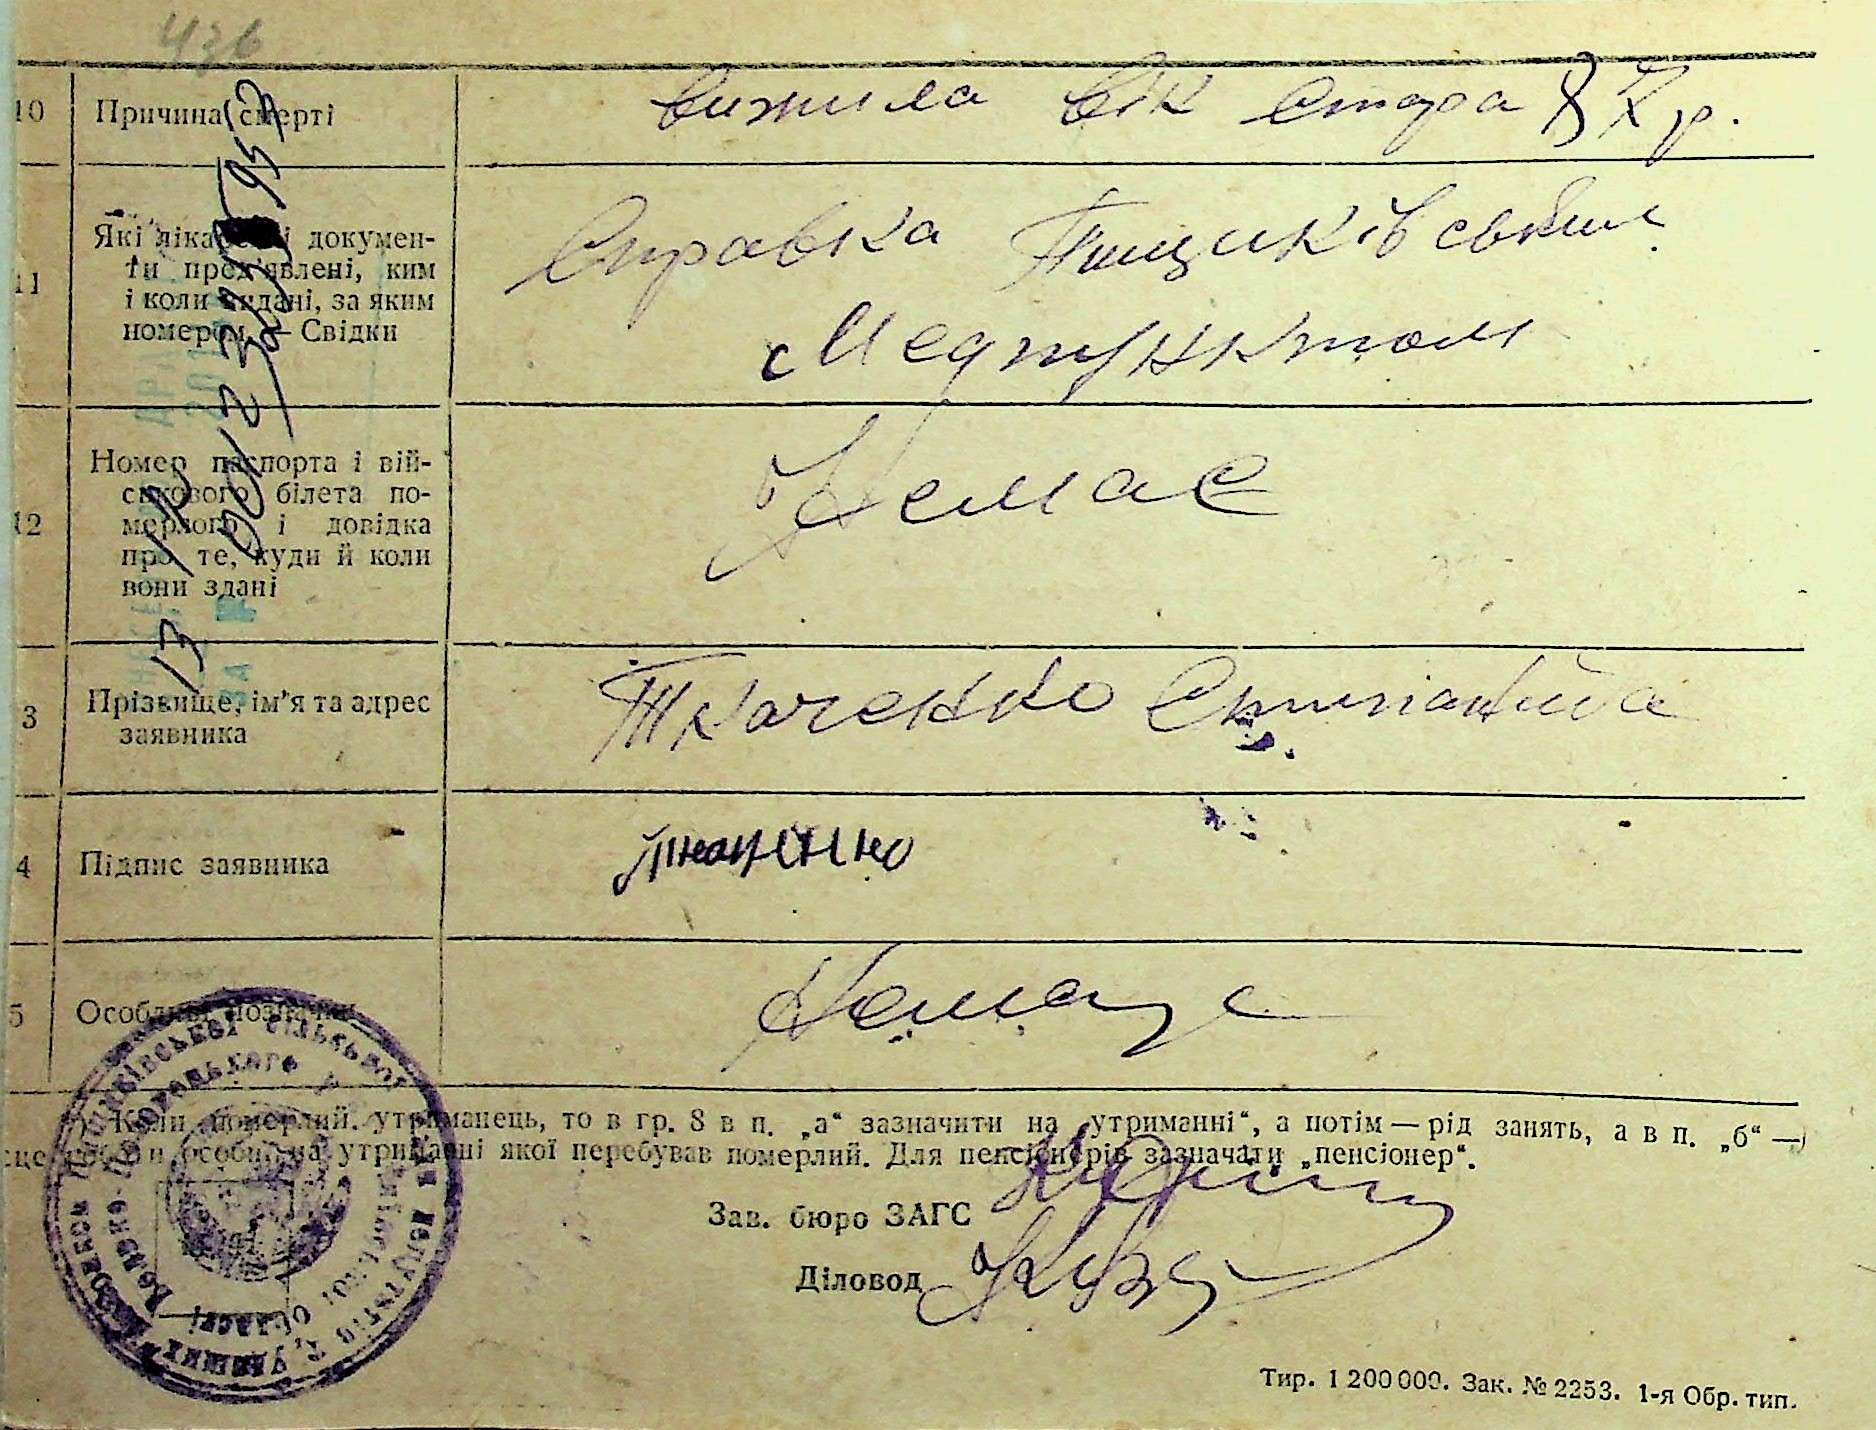 436
10 Причина смерті
вижила вік стара 87 р.
11 Які лікарські докумен-
ти пред'явлені, ким
і коли видані, за яким
номером. — Свідки
Справка Пищиківським
Медпунктом
12 Номер паспорта і вій-
ськового білета по-
мерлого і довідка
про те, куди й коли
вони здані
Немає
3 Прізвище, ім'я та адрес
заявника
Ткаченко
4 Підпис заявника
Ткаченко
5 Особливі позначки
Немає
Коли померлий утриманець, то в гр. 8 в п. „а“ зазначити на утриманні“, а потім — рід занять, а в п. „б“ —
особи на утриманні якої перебував померлий. Для пенсіонерів зазначати „пенсіонер“.
Зав. бюро ЗАГС
Діловод
Тир. 1 200 000. Зак. № 2253. 1-я Обр. тип.